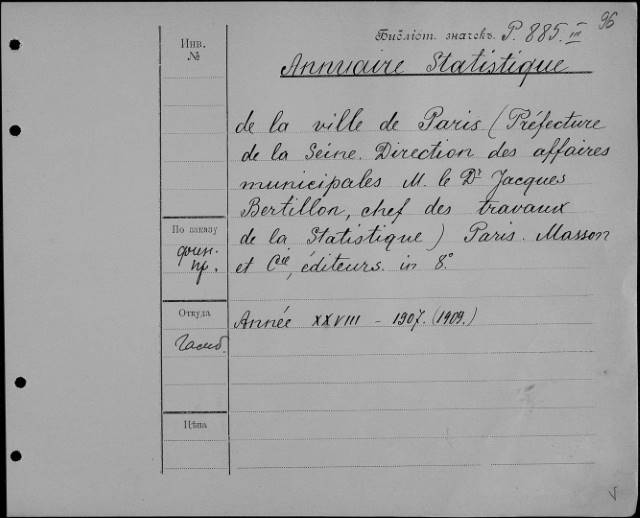 96
Библіот. значекъ P. 885. III
Инв.
№
Annuaire Statistique
de la ville de Paris (Préfecture
de la Seine. Direction des affaires
municipales M. le Dr Jacques
Bertillon, chef des travaux
de la Statistique) Paris. Masson
et Cie, éditeurs. in 8.°
По заказу
фин.
пр.
Откуда
Année XXVIII – 1907. (1909.)
Цѣна